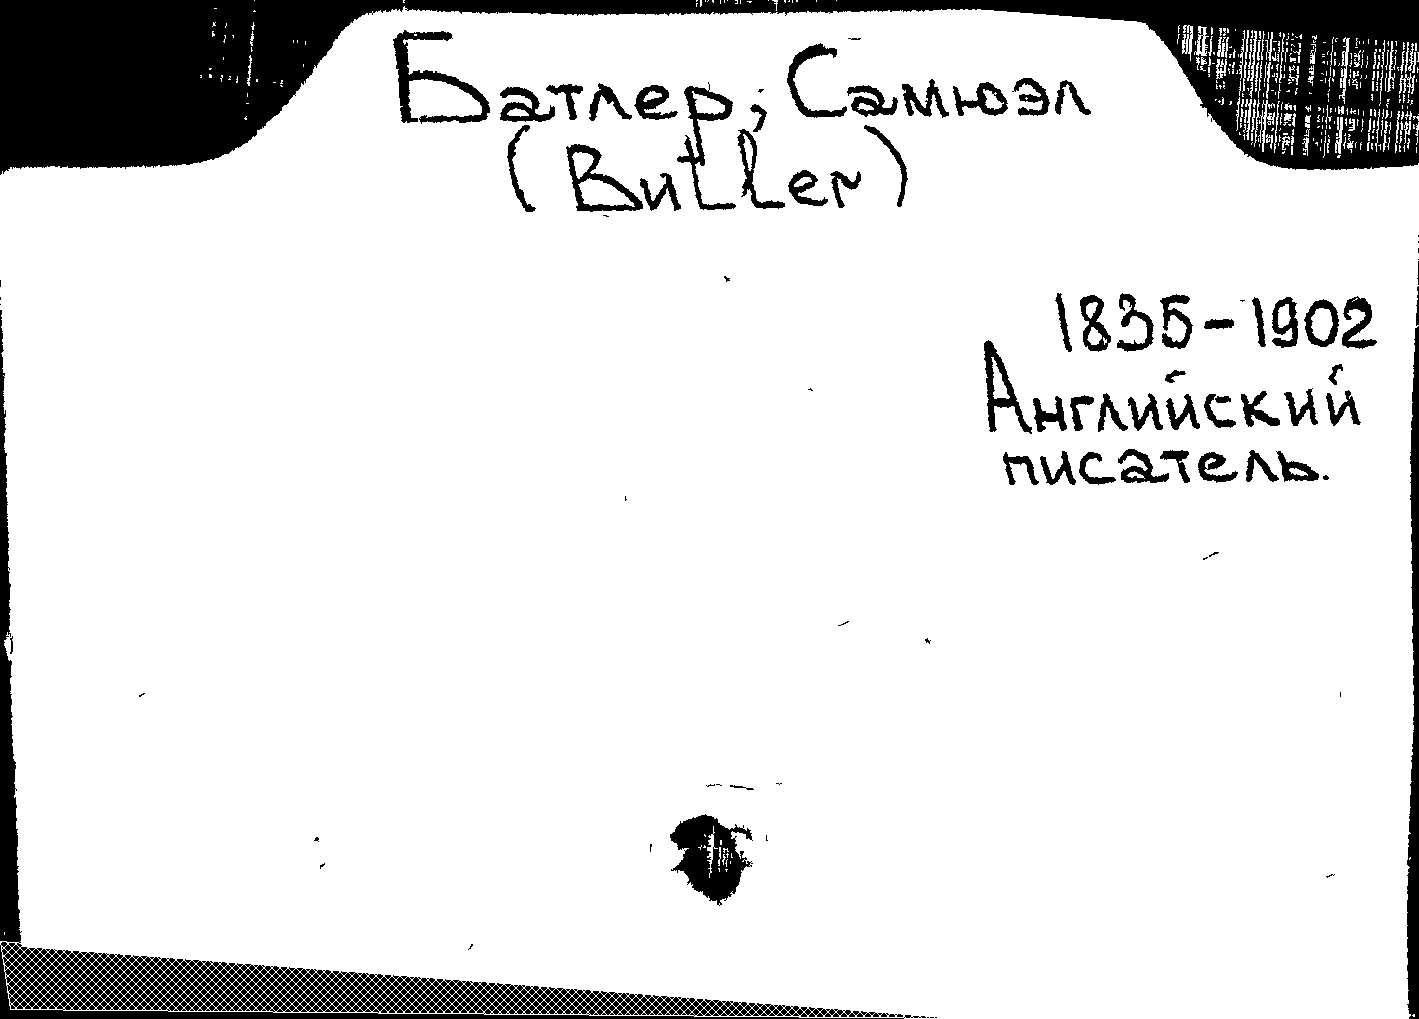 Батлер, Самюэл
(Butler)
1835-1902
Английский
писатель.